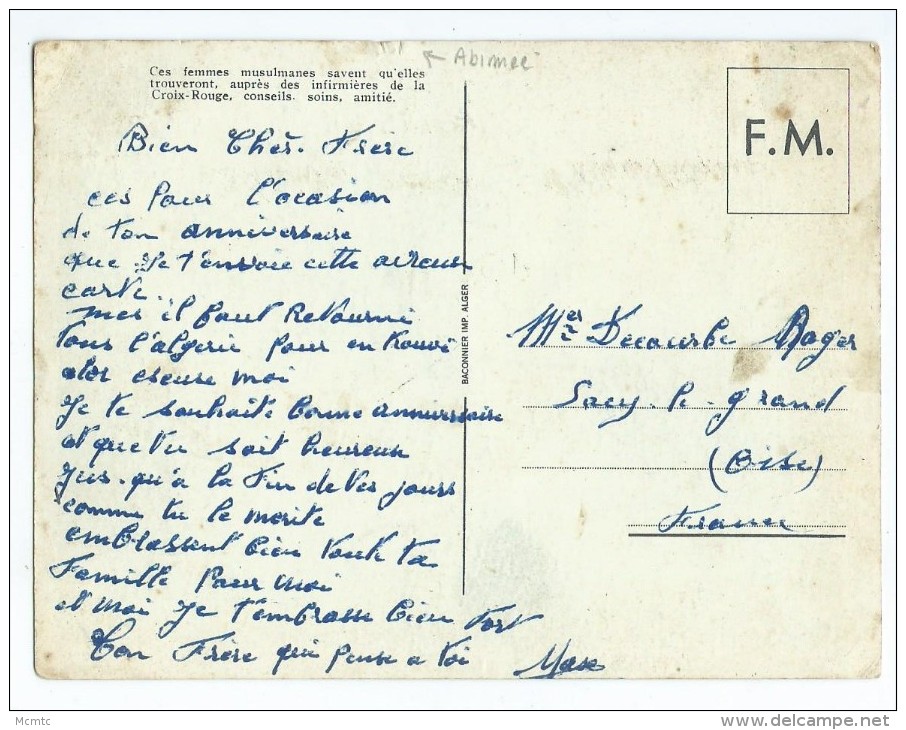 Abimée
Ces femmes musulmanes savent qu'elles
trouveront, auprès des infirmières de la
Croix-Rouge, conseils, soins, amitié.
F.M.
Bien Cher. Frere
ces pour l'ocasion
de ton anniversaire
que Je t'envoie cette
carte.
mes il faut Retourné
tous l'algerie pour en trouvé
moi
Je te souhaite bonne anniverssaire
et que tu soit heureuse
Jus. qu'à la Fin de tes jours
comme tu le merite
emblassent bien toute ta
Famille pour moi
et moi Je t'embrasse bien Fort
Ton Frère qui pense a toi
BACONNIER IMP. ALGER
Roger
Sacy. le. grand
(Oise)
France
Mcmtc
delcampe.net